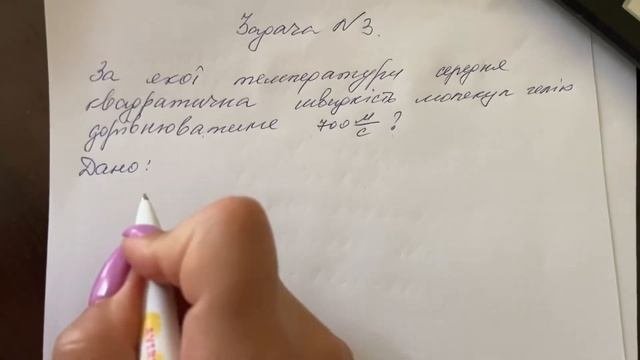 Задача №3.
За якої температури середня
квадратична швидкість молекул гелію
дорівнюватиме 700 м/с ?
Дано: